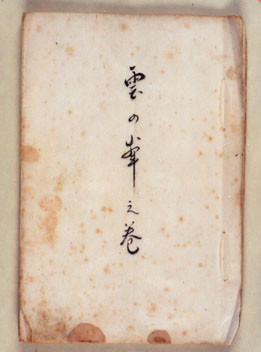 雲の峯之巻